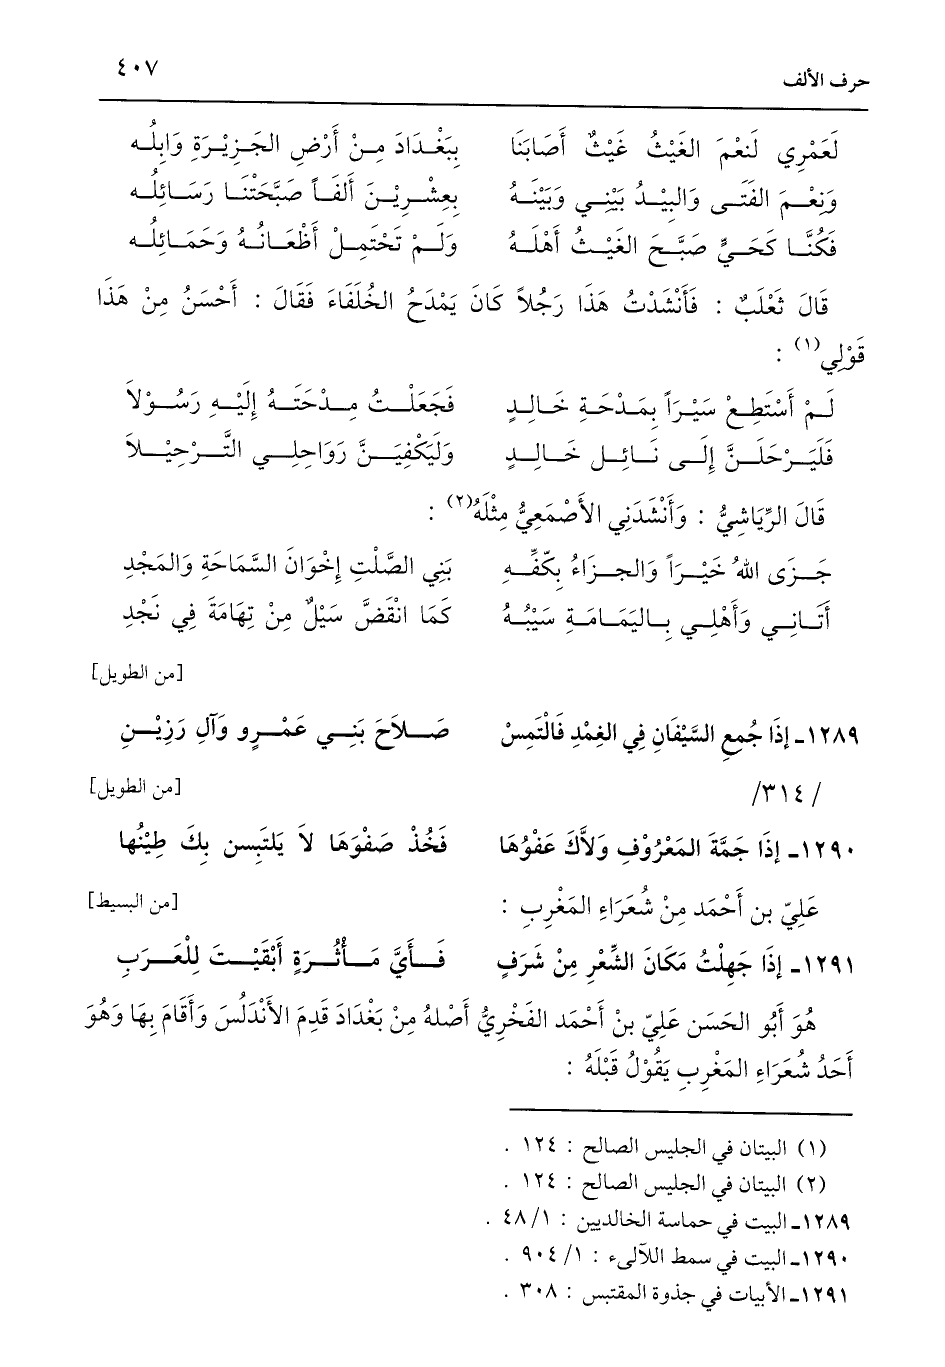 حرف الألف ٤٠٧
لَعَمْرِي لَنَعْمَ الغَيْثُ غَيْثٌ أَصَابَنَا بِبَغْدَادَ مِنْ أَرْضِ الجَزِيْرَةِ وَابِلُه
وَنِعْمَ الفَتَى وَالبِيْدُ بَيْنِي وَبَيْنَهُ بِعِشْرِيْنَ أَلفَاً صَبَّحَتْنَا رَسَائِلُه
فَكُنَّا كَحَيٍّ صَبَّحَ الغَيْثُ أَهْلَهُ وَلَمْ تَحْتَمِلْ أَظْعَانُهُ وَحَمَائِلُه
قَالَ ثَعْلَبٌ : فَأَنْشَدْتُ هَذَا رَجُلاً كَانَ يَمْدَحُ الخُلَفَاءَ فَقَالَ : أَحْسَنُ مِنْ هَذَا
قَوْلِي(١) :
لَمْ أَسْتَطِعْ سَيْرَاً بِمَدْحَةِ خَالِدٍ فَجَعَلْتُ مِدْحَتَهُ إِلَيْهِ رَسُوْلاَ
فَلَيَرْحَلَنَّ إِلَى نَائِلِ خَالِدٍ وَلَيَكْفِيَنَّ رَوَاحِلِي التَّرْحِيْلاَ
قَالَ الرِّيَاشِيُّ : وَأَنْشَدَنِي الأَصْمَعِيُّ مِثْلَهُ(٢) :
جَزَى اللهُ خَيْرَاً وَالجزَاءُ بِكَفِّهِ بَنِي الصَّلْتِ إِخْوَانَ السَّمَاحَةِ وَالمَجْدِ
أَتَانِي وَأَهْلِي بِاليَمَامَةِ سَيْبُهُ كَمَا انْقَضَّ سَيْلٌ مِنْ تِهَامَةَ فِي نَجْدِ
[من الطويل]
١٢٨٩ـ إِذَا جُمِعِ السَّيْفَانِ فِي الغِمْدِ فَالْتَمِسْ صَلاَحَ بَنِي عَمْرِو وَآلِ رَزِيْنِ
/ ٣١٤/ [من الطويل]
١٢٩٠ـ إِذَا جَمَّةَ المَعْرُوْفِ وَلاَّكَ عَفْوُهَا فَخُذْ صَفْوَهَا لاَ يَلتَبِسن بِكَ طِيْنُها
عَلِيّ بن أَحْمَد مِنْ شُعَرَاءِ المَغْرِبِ : [من البسيط]
١٢٩١ـ إِذَا جَهِلْتُ مَكَانَ الشِّعْرِ مِنْ شَرَفٍ فَأَيَّ مَأْثُرَةٍ أَبْقَيْتَ لِلْعَرَبِ
هُوَ أَبُو الحَسَن عَلِيّ بنْ أَحْمَد الفَخْرِيُّ أَصْلهُ مِنْ بَغْدَادَ قَدِمَ الأَنْدَلُسَ وَأَقَامَ بِهَا وَهُوَ
أَحَدُ شُعَرَاءِ المَغْرِبِ يَقُوْلُ قَبْلَهُ :
(١) البيتان في الجليس الصالح : ١٢٤ .
(٢) البيتان في الجليس الصالح : ١٢٤ .
١٢٨٩ـ البيت في حماسة الخالديين : ٤٨/١ .
١٢٩٠ـ البيت في سمط اللآلىء : ٩٠٤/١ .
١٢٩١ـ الأبيات في جذوة المقتبس : ٣٠٨ .